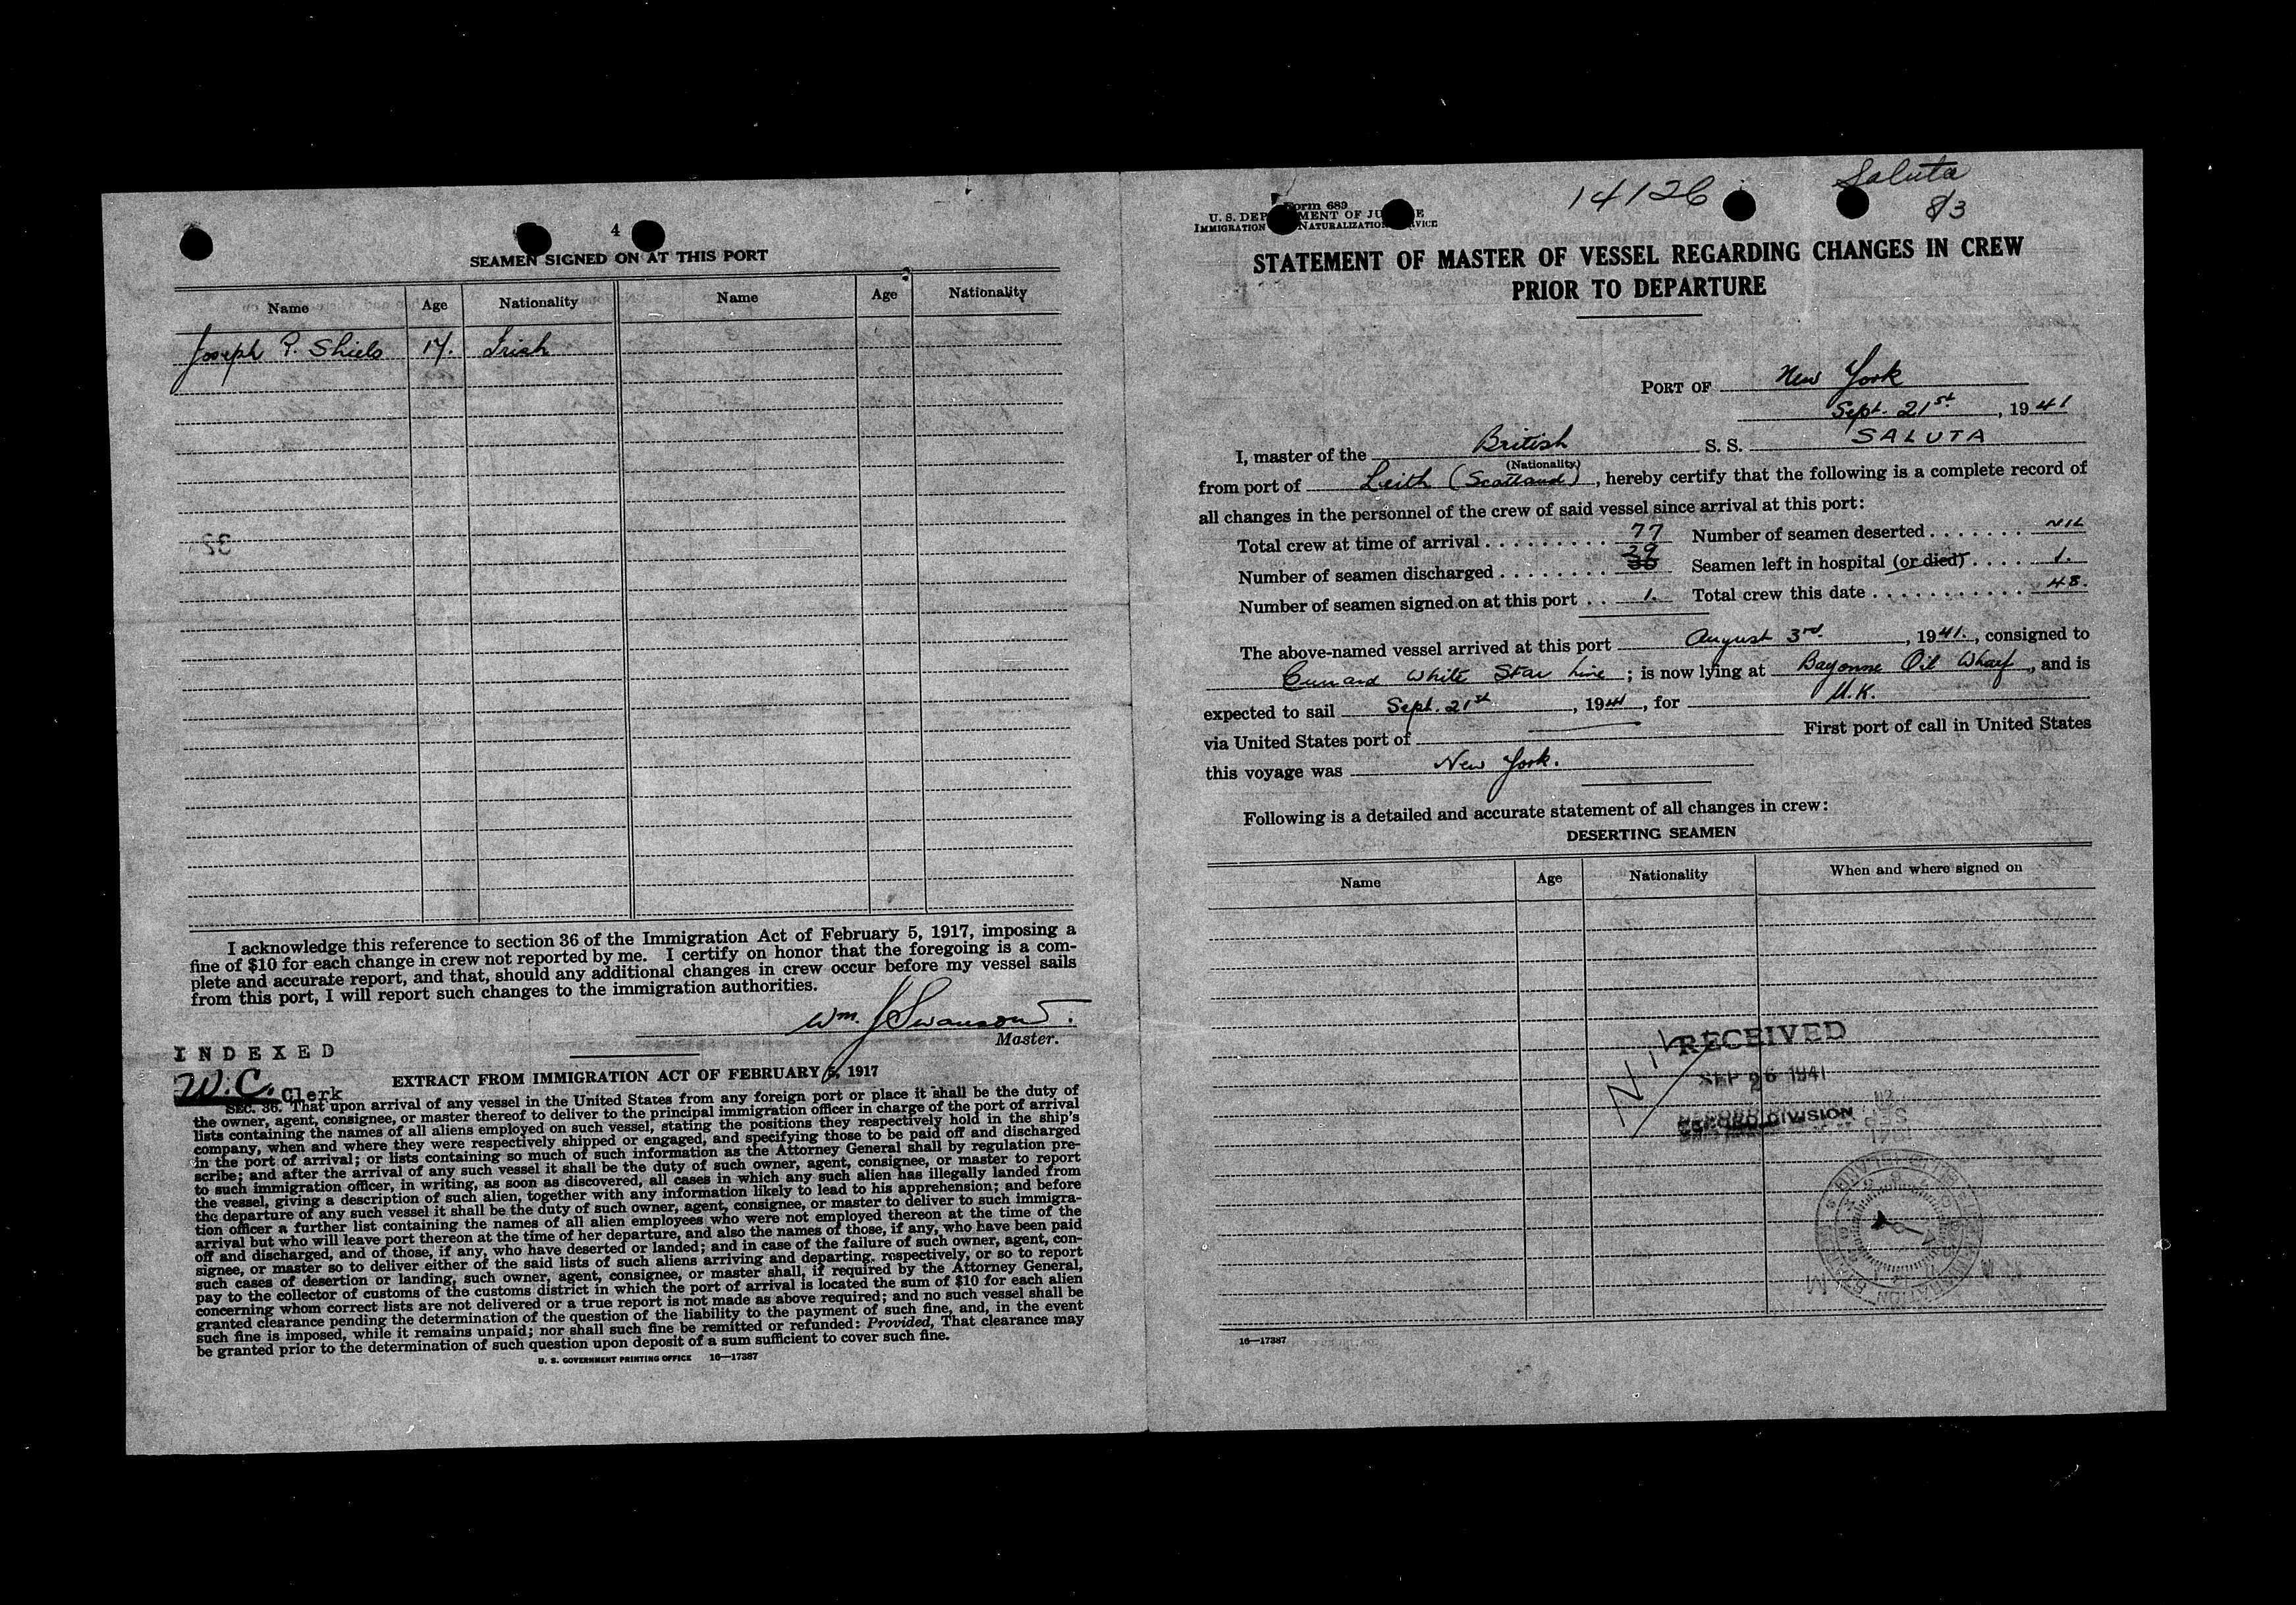 4
SEAMEN SIGNED ON AT THIS PORT
Name Age Nationality Name Age Nationality
Joseph P. Shiels 17. Irish
I acknowledge this reference to section 36 of the Immigration Act of February 5, 1917, imposing a
fine of $10 for each change in crew not reported by me. I certify on honor that the foregoing is a com-
plete and accurate report, and that, should any additional changes in crew occur before my vessel sails
from this port, I will report such changes to the immigration authorities.
Wm. J Swanson.
Master.
INDEXED
W.C. Clerk
EXTRACT FROM IMMIGRATION ACT OF FEBRUARY 5, 1917
SEC. 36. That upon arrival of any vessel in the United States from any foreign port or place it shall be the duty of
the owner, agent, consignee, or master thereof to deliver to the principal immigration officer in charge of the port of arrival
lists containing the names of all aliens employed on such vessel, stating the positions they respectively hold in the ship's
company, when and where they were respectively shipped or engaged, and specifying those to be paid off and discharged
in the port of arrival; or lists containing so much of such information as the Attorney General shall by regulation pre-
scribe; and after the arrival of any such vessel it shall be the duty of such owner, agent, consignee, or master to report
to such immigration officer, in writing, as soon as discovered, all cases in which any such alien has illegally landed from
the vessel, giving a description of such alien, together with any information likely to lead to his apprehension; and before
the departure of any such vessel it shall be the duty of such owner, agent, consignee, or master to deliver to such immigra-
tion officer a further list containing the names of all alien employees who were not employed thereon at the time of the
arrival but who will leave port thereon at the time of her departure, and also the names of those, if any, who have been paid
off and discharged, and of those, if any, who have deserted or landed; and in case of the failure of such owner, agent, con-
signee, or master so to deliver either of the said lists of such aliens arriving and departing, respectively, or so to report
such cases of desertion or landing, such owner, agent, consignee, or master shall, if required by the Attorney General,
pay to the collector of customs of the customs district in which the port of arrival is located the sum of $10 for each alien
concerning whom correct lists are not delivered or a true report is not made as above required; and no such vessel shall be
granted clearance pending the determination of the question of the liability to the payment of such fine, and, in the event
such fine is imposed, while it remains unpaid; nor shall such fine be remitted or refunded: Provided, That clearance may
be granted prior to the determination of such question upon deposit of a sum sufficient to cover such fine.
U. S. GOVERNMENT PRINTING OFFICE 16—17387
Form 689
U. S. DEP MENT OF JU E
IMMIGRATION NATURALIZATION VICE
14126
Saluta
8/3
STATEMENT OF MASTER OF VESSEL REGARDING CHANGES IN CREW
PRIOR TO DEPARTURE
PORT OF New York
Sept. 21st, 1941
I, master of the British S. S. SALUTA
(Nationality)
from port of Leith (Scotland), hereby certify that the following is a complete record of
all changes in the personnel of the crew of said vessel since arrival at this port:
Total crew at time of arrival 77 Number of seamen deserted NIL
Number of seamen discharged 29 Seamen left in hospital (or died) 1.
Number of seamen signed on at this port 1. Total crew this date 48.
The above-named vessel arrived at this port August 3rd, 1941., consigned to
Cunard White Star Line; is now lying at Bayonne Oil Wharf, and is
expected to sail Sept. 21st, 1941, for U.K.
via United States port of First port of call in United States
this voyage was New York.
Following is a detailed and accurate statement of all changes in crew:
DESERTING SEAMEN
Name Age Nationality When and where signed on
Nil
RECEIVED
SEP 26 1941
RECORD DIVISION
16—17387